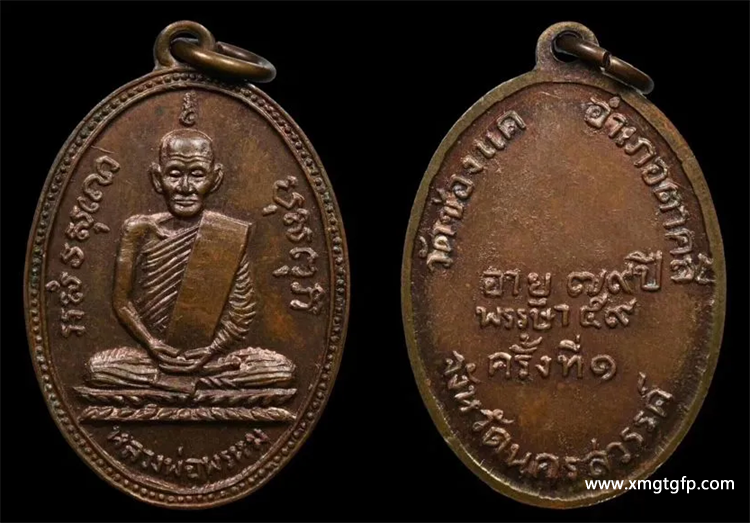 หลวงพ่อพรหม
วัดช่องแค
อำเภอตาคลี
อายุ ๗๙ ปี
พรรษา ๕๙
ครั้งที่ ๑
จังหวัดนครสวรรค์
www.xmgtgfp.com